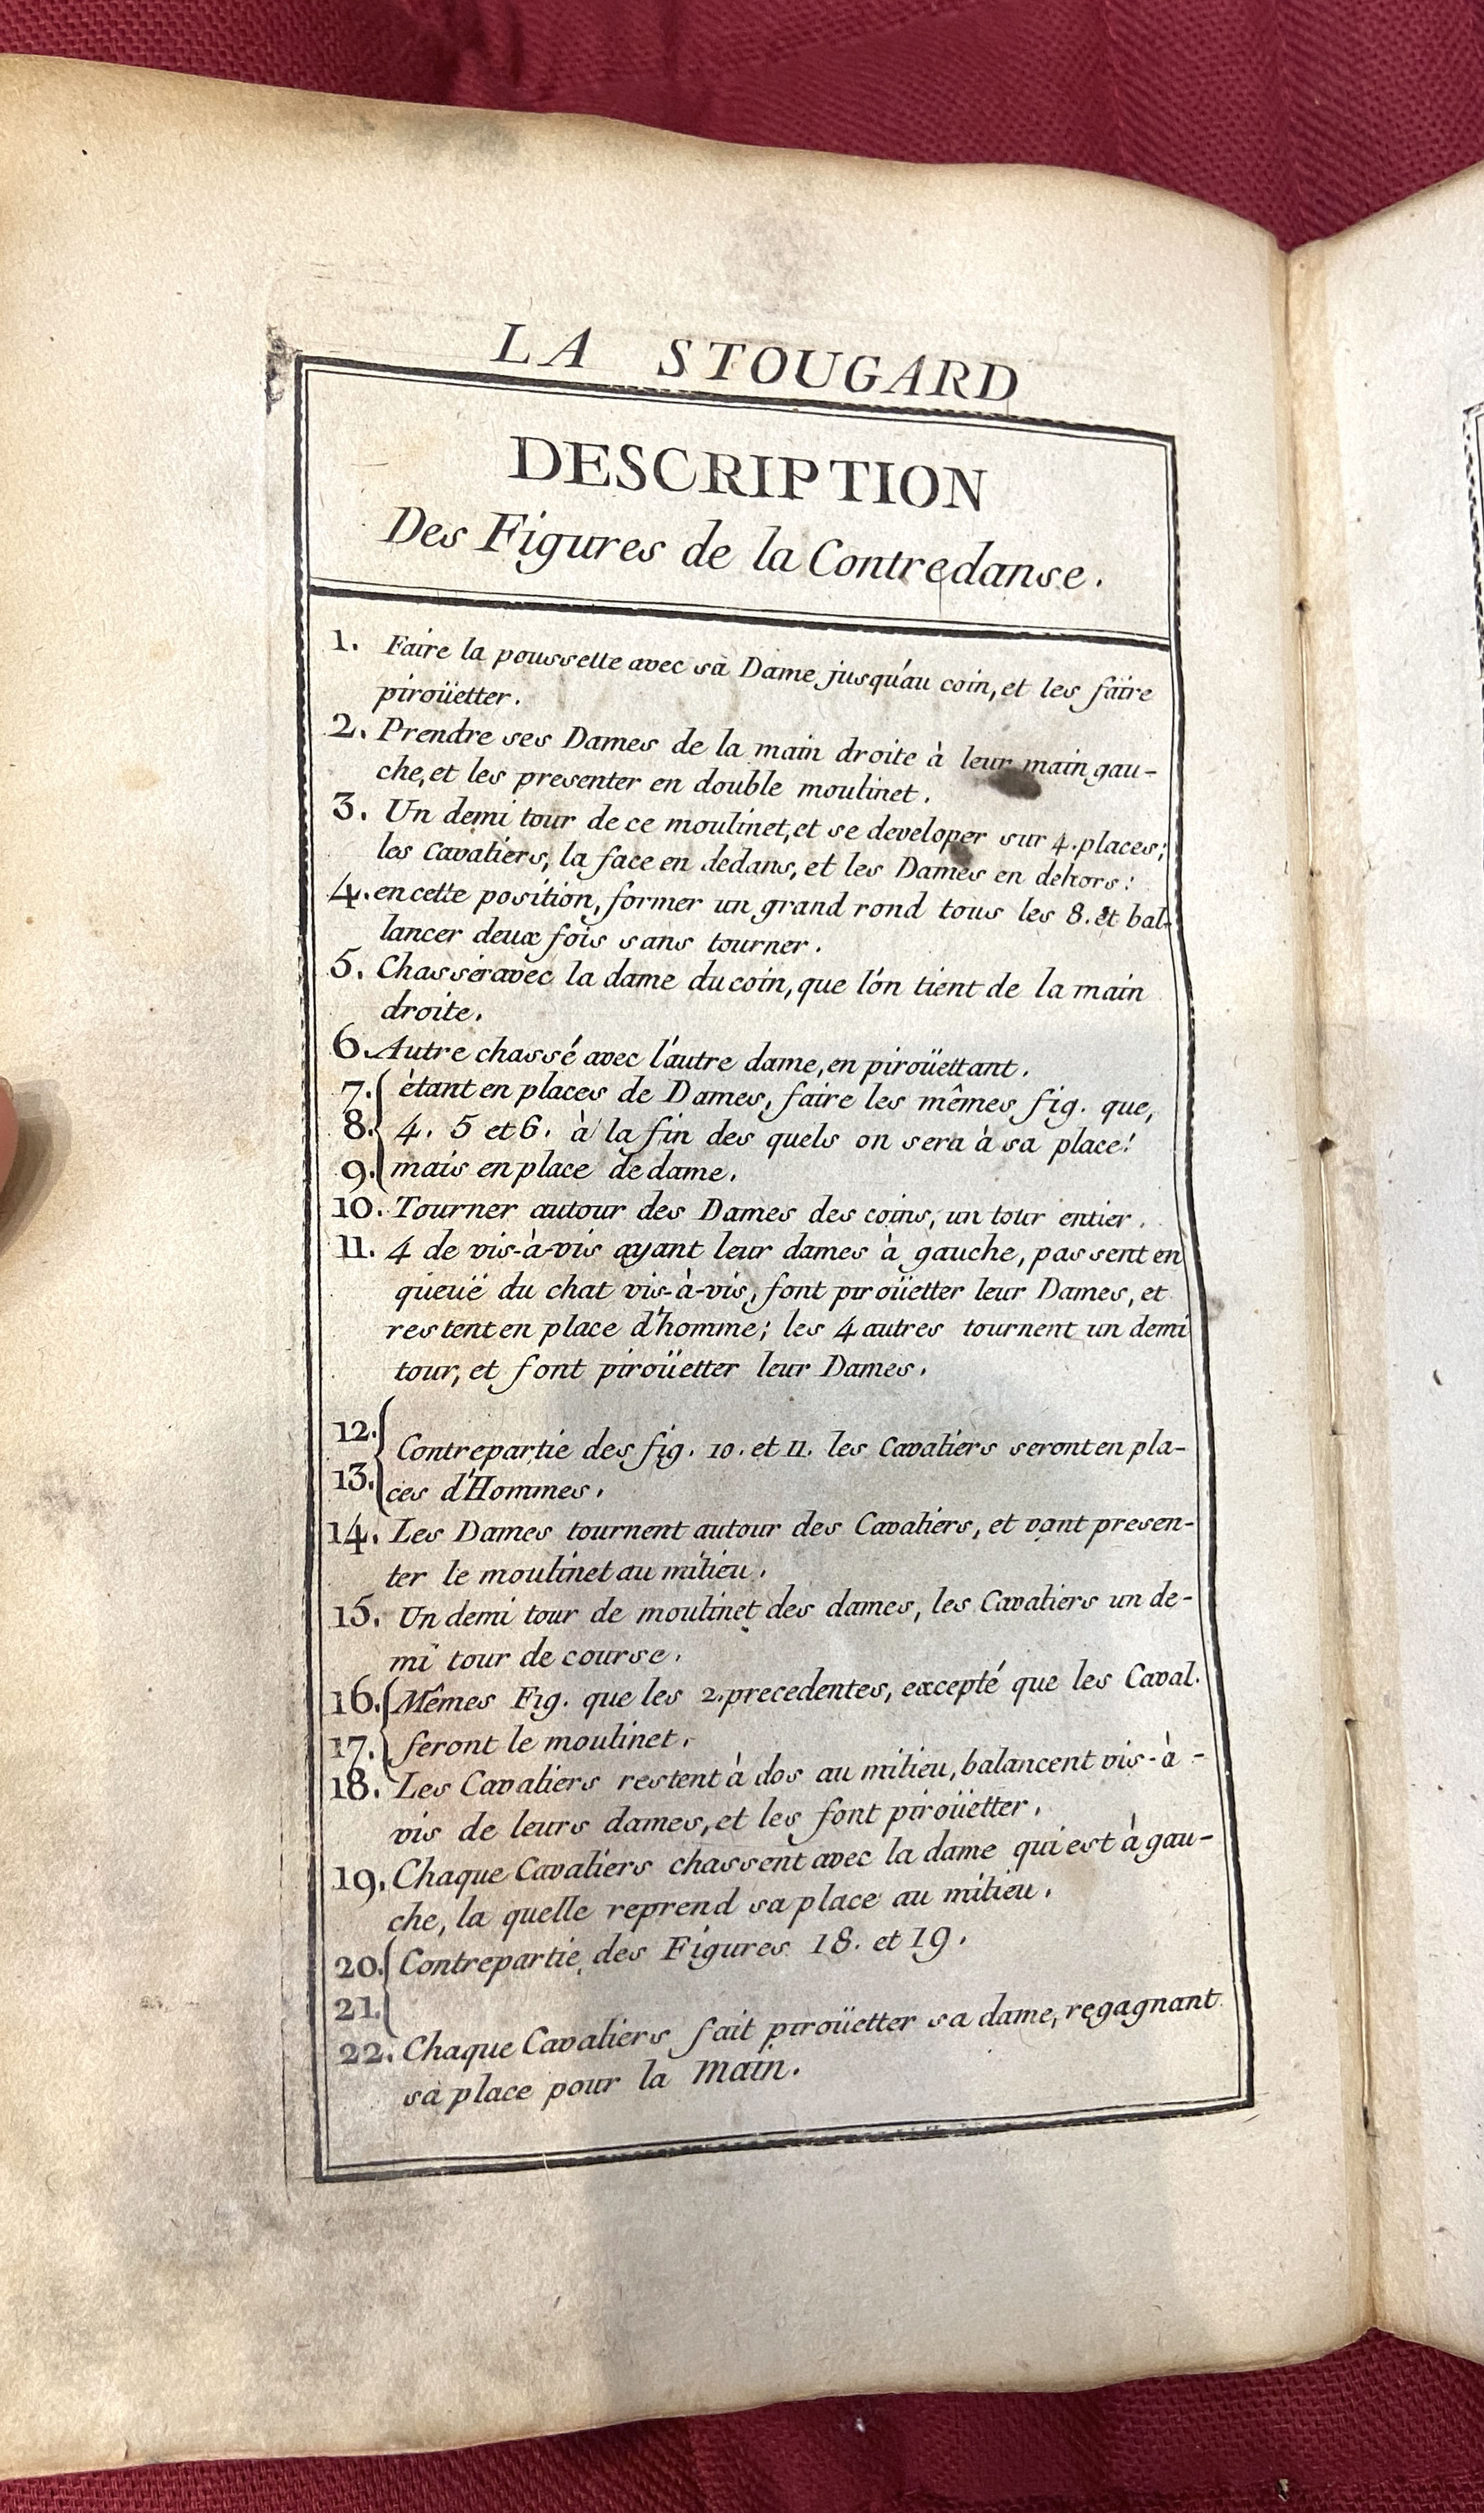 LA STOUGARD
DESCRIPTION
Des Figures de la Contredanse.
1. Faire la poussette avec sa Dame jusqu'au coin, et les faire
piroüetter.
2. Prendre ses Dames de la main droite à leur main gau-
che, et les presenter en double moulinet.
3. Un demi tour de ce moulinet, et se developer sur 4. places;
les Cavaliers, la face en dedans, et les Dames en dehors:
4. en cette position, former un grand rond tous les 8. et bal-
lancer deux fois sans tourner.
5. Chasser avec la dame du coin, que l'on tient de la main
droite.
6. Autre chassé avec l'autre dame, en piroüettant.
7. étant en places de Dames, faire les mêmes fig. que,
8. 4. 5 et 6. à la fin des quels on sera à sa place:
9. mais en place de dame.
10. Tourner autour des Dames des coins, un tour entier.
11. 4 de vis-à-vis ayant leur dames à gauche, passent en
queuë du chat vis-à-vis, font piroüetter leur Dames, et
restent en place d'homme; les 4 autres tournent un demi
tour, et font piroüetter leur Dames.
12. Contrepartie des fig. 10. et 11. les Cavaliers seront en pla-
13. ces d'Hommes.
14. Les Dames tournent autour des Cavaliers, et vont presen-
ter le moulinet au milieu.
15. Un demi tour de moulinet des dames, les Cavaliers un de-
mi tour de course.
16. Mêmes Fig. que les 2. precedentes, excepté que les Caval.
17. feront le moulinet.
18. Les Cavaliers restent à dos au milieu, balancent vis-à-
vis de leurs dames, et les font piroüetter.
19. Chaque Cavaliers chassent avec la dame qui est à gau-
che, la quelle reprend sa place au milieu.
20. Contrepartie des Figures 18. et 19.
21.
22. Chaque Cavaliers fait piroüetter sa dame, regagnant
sa place pour la main.